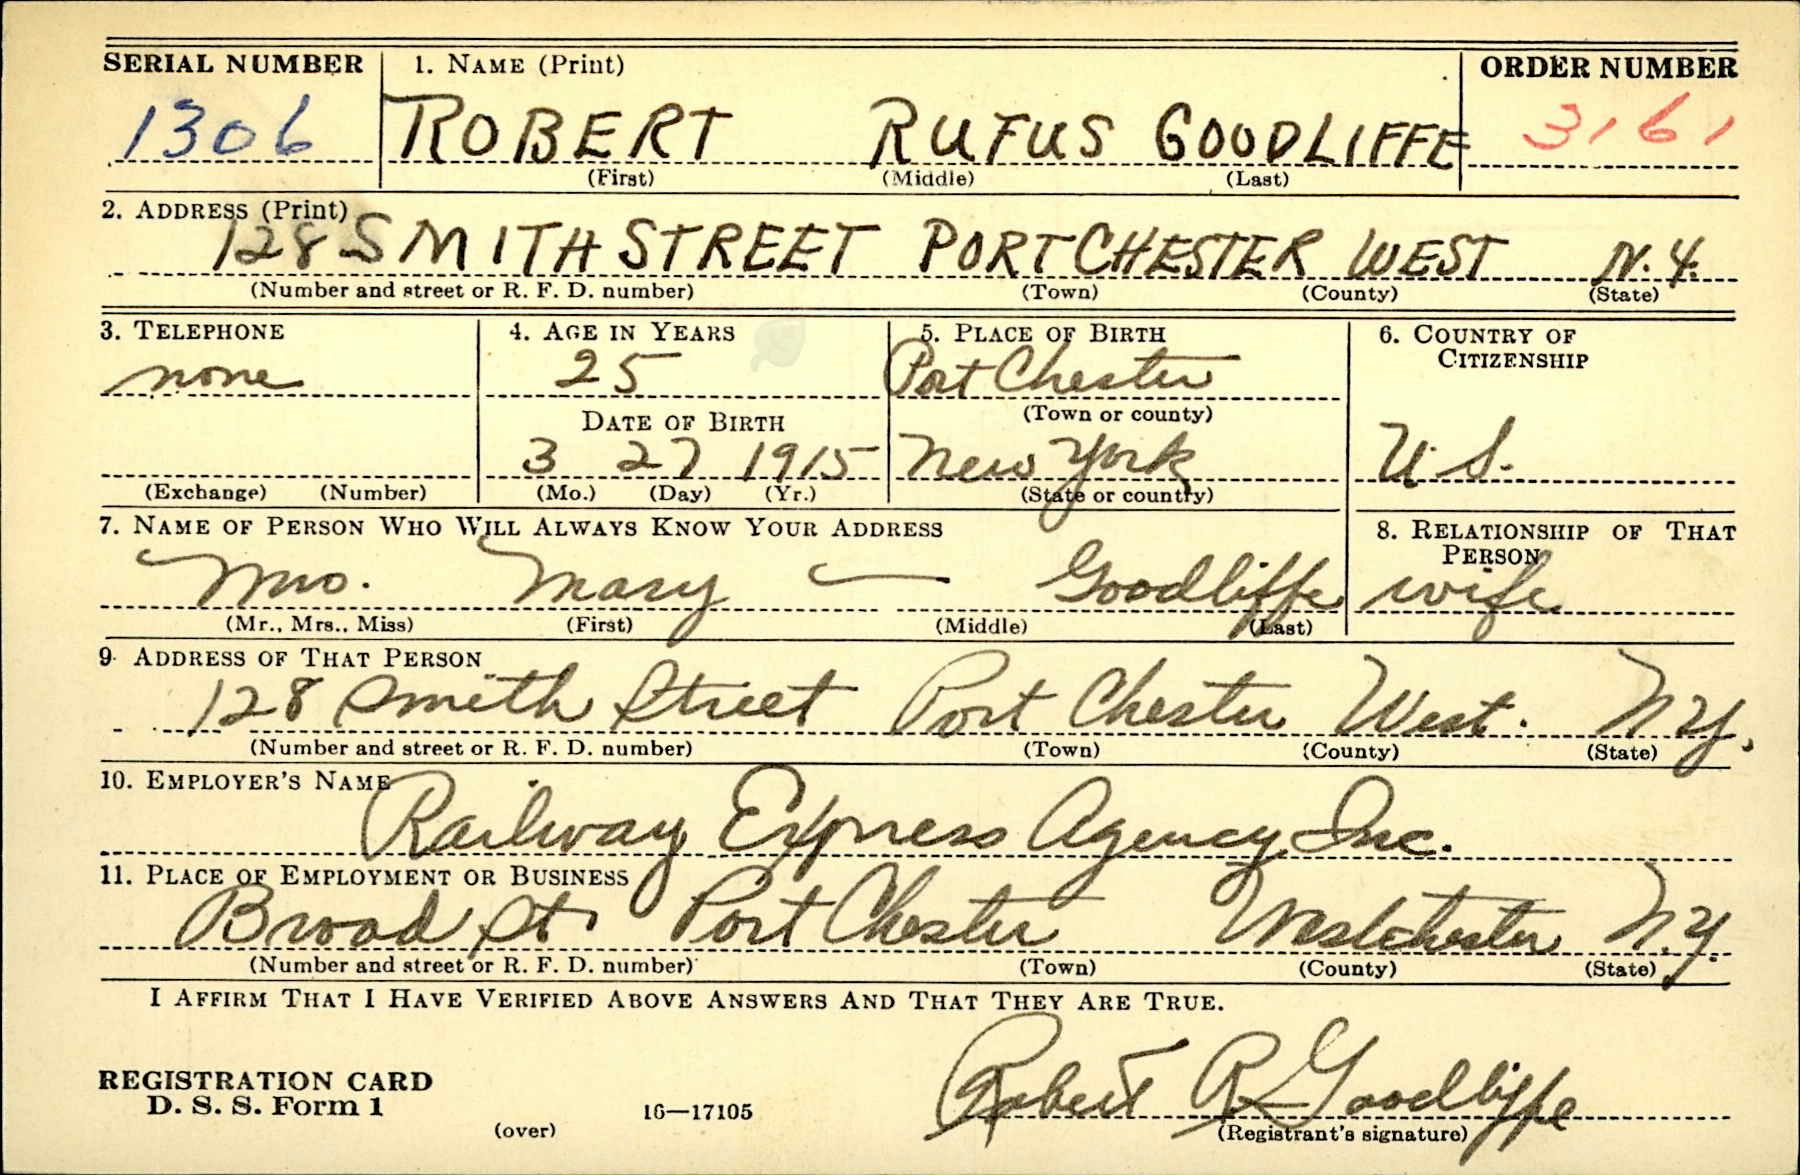 SERIAL NUMBER 1. NAME (Print) ORDER NUMBER
1306 ROBERT RUFUS GOODLIFFE 3161
(First) (Middle) (Last)
2. ADDRESS (Print)
128 SMITH STREET PORTCHESTER WEST N.Y.
(Number and street or R. F. D. number) (Town) (County) (State)
3. TELEPHONE 4. AGE IN YEARS 5. PLACE OF BIRTH 6. COUNTRY OF CITIZENSHIP
none 25 Port Chester
DATE OF BIRTH (Town or county)
3 27 1915 New York U.S.
(Exchange) (Number) (Mo.) (Day) (Yr.) (State or country)
7. NAME OF PERSON WHO WILL ALWAYS KNOW YOUR ADDRESS 8. RELATIONSHIP OF THAT PERSON
Mrs. Mary — Goodliffe wife
(Mr., Mrs., Miss) (First) (Middle) (Last)
9. ADDRESS OF THAT PERSON
128 Smith Street Port Chester West. N.Y.
(Number and street or R. F. D. number) (Town) (County) (State)
10. EMPLOYER'S NAME
Railway Express Agency Inc.
11. PLACE OF EMPLOYMENT OR BUSINESS
Broad St. Port Chester Westchester N.Y.
(Number and street or R. F. D. number) (Town) (County) (State)
I AFFIRM THAT I HAVE VERIFIED ABOVE ANSWERS AND THAT THEY ARE TRUE.
Robert R Goodliffe
REGISTRATION CARD
D. S. S. Form 1 16—17105
(over) (Registrant's signature)